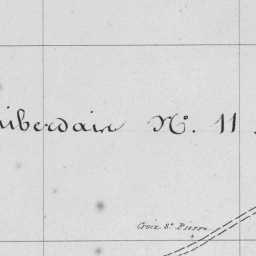 uiberdain N°. 11
Croix St. Pierre